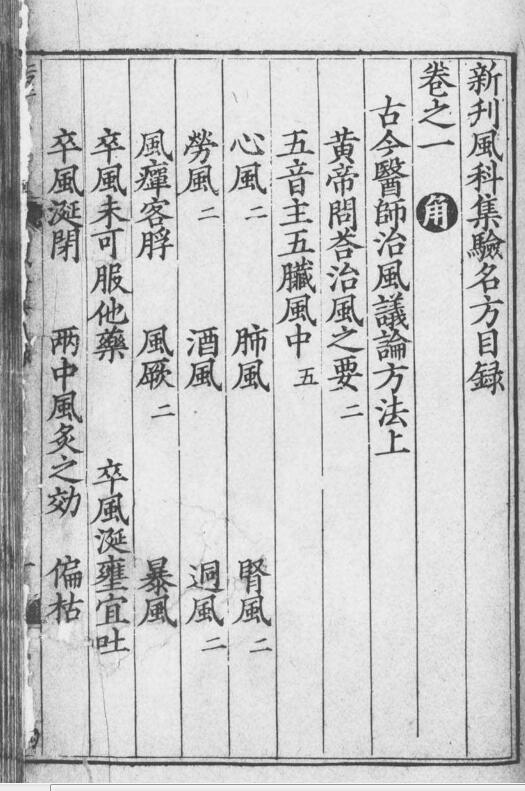 新刋風科集驗名方目録
卷之一 角
古今醫師治風議論方法上
黄帝問荅治風之要 二
五音主五臟風中 五
心風 二 肺風 腎風 二
勞風 二 酒風 迵風 二
風癉客脬 風厥 二 暴風
卒風未可服他藥 卒風涎壅宜吐
卒風涎閉 兩中風灸之効 偏枯